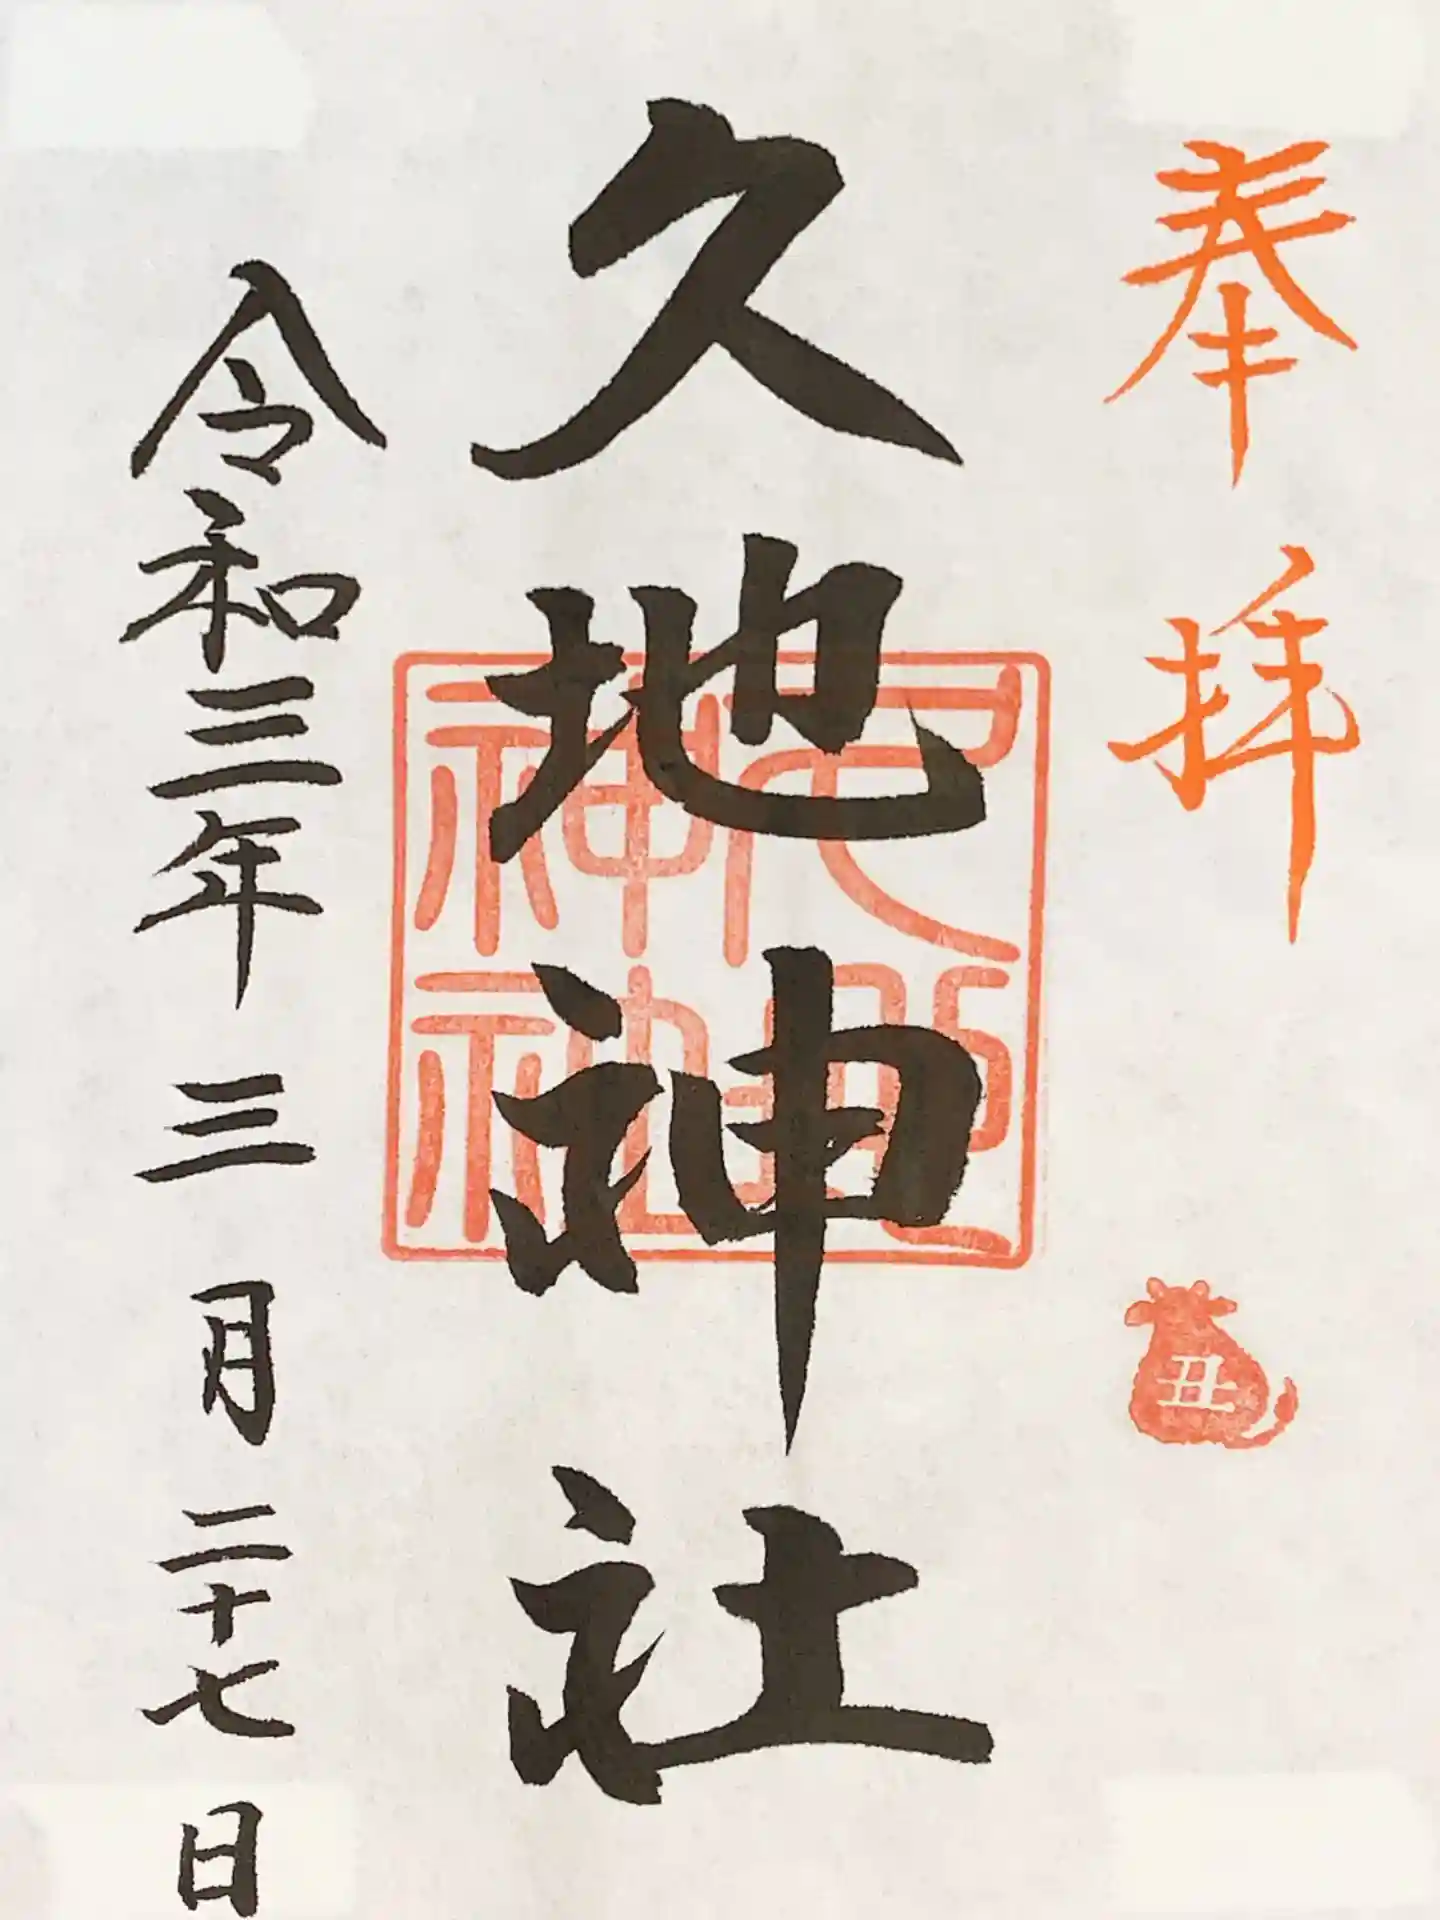 奉拝
丑
久地神社
久地
神社
令和三年三月二十七日